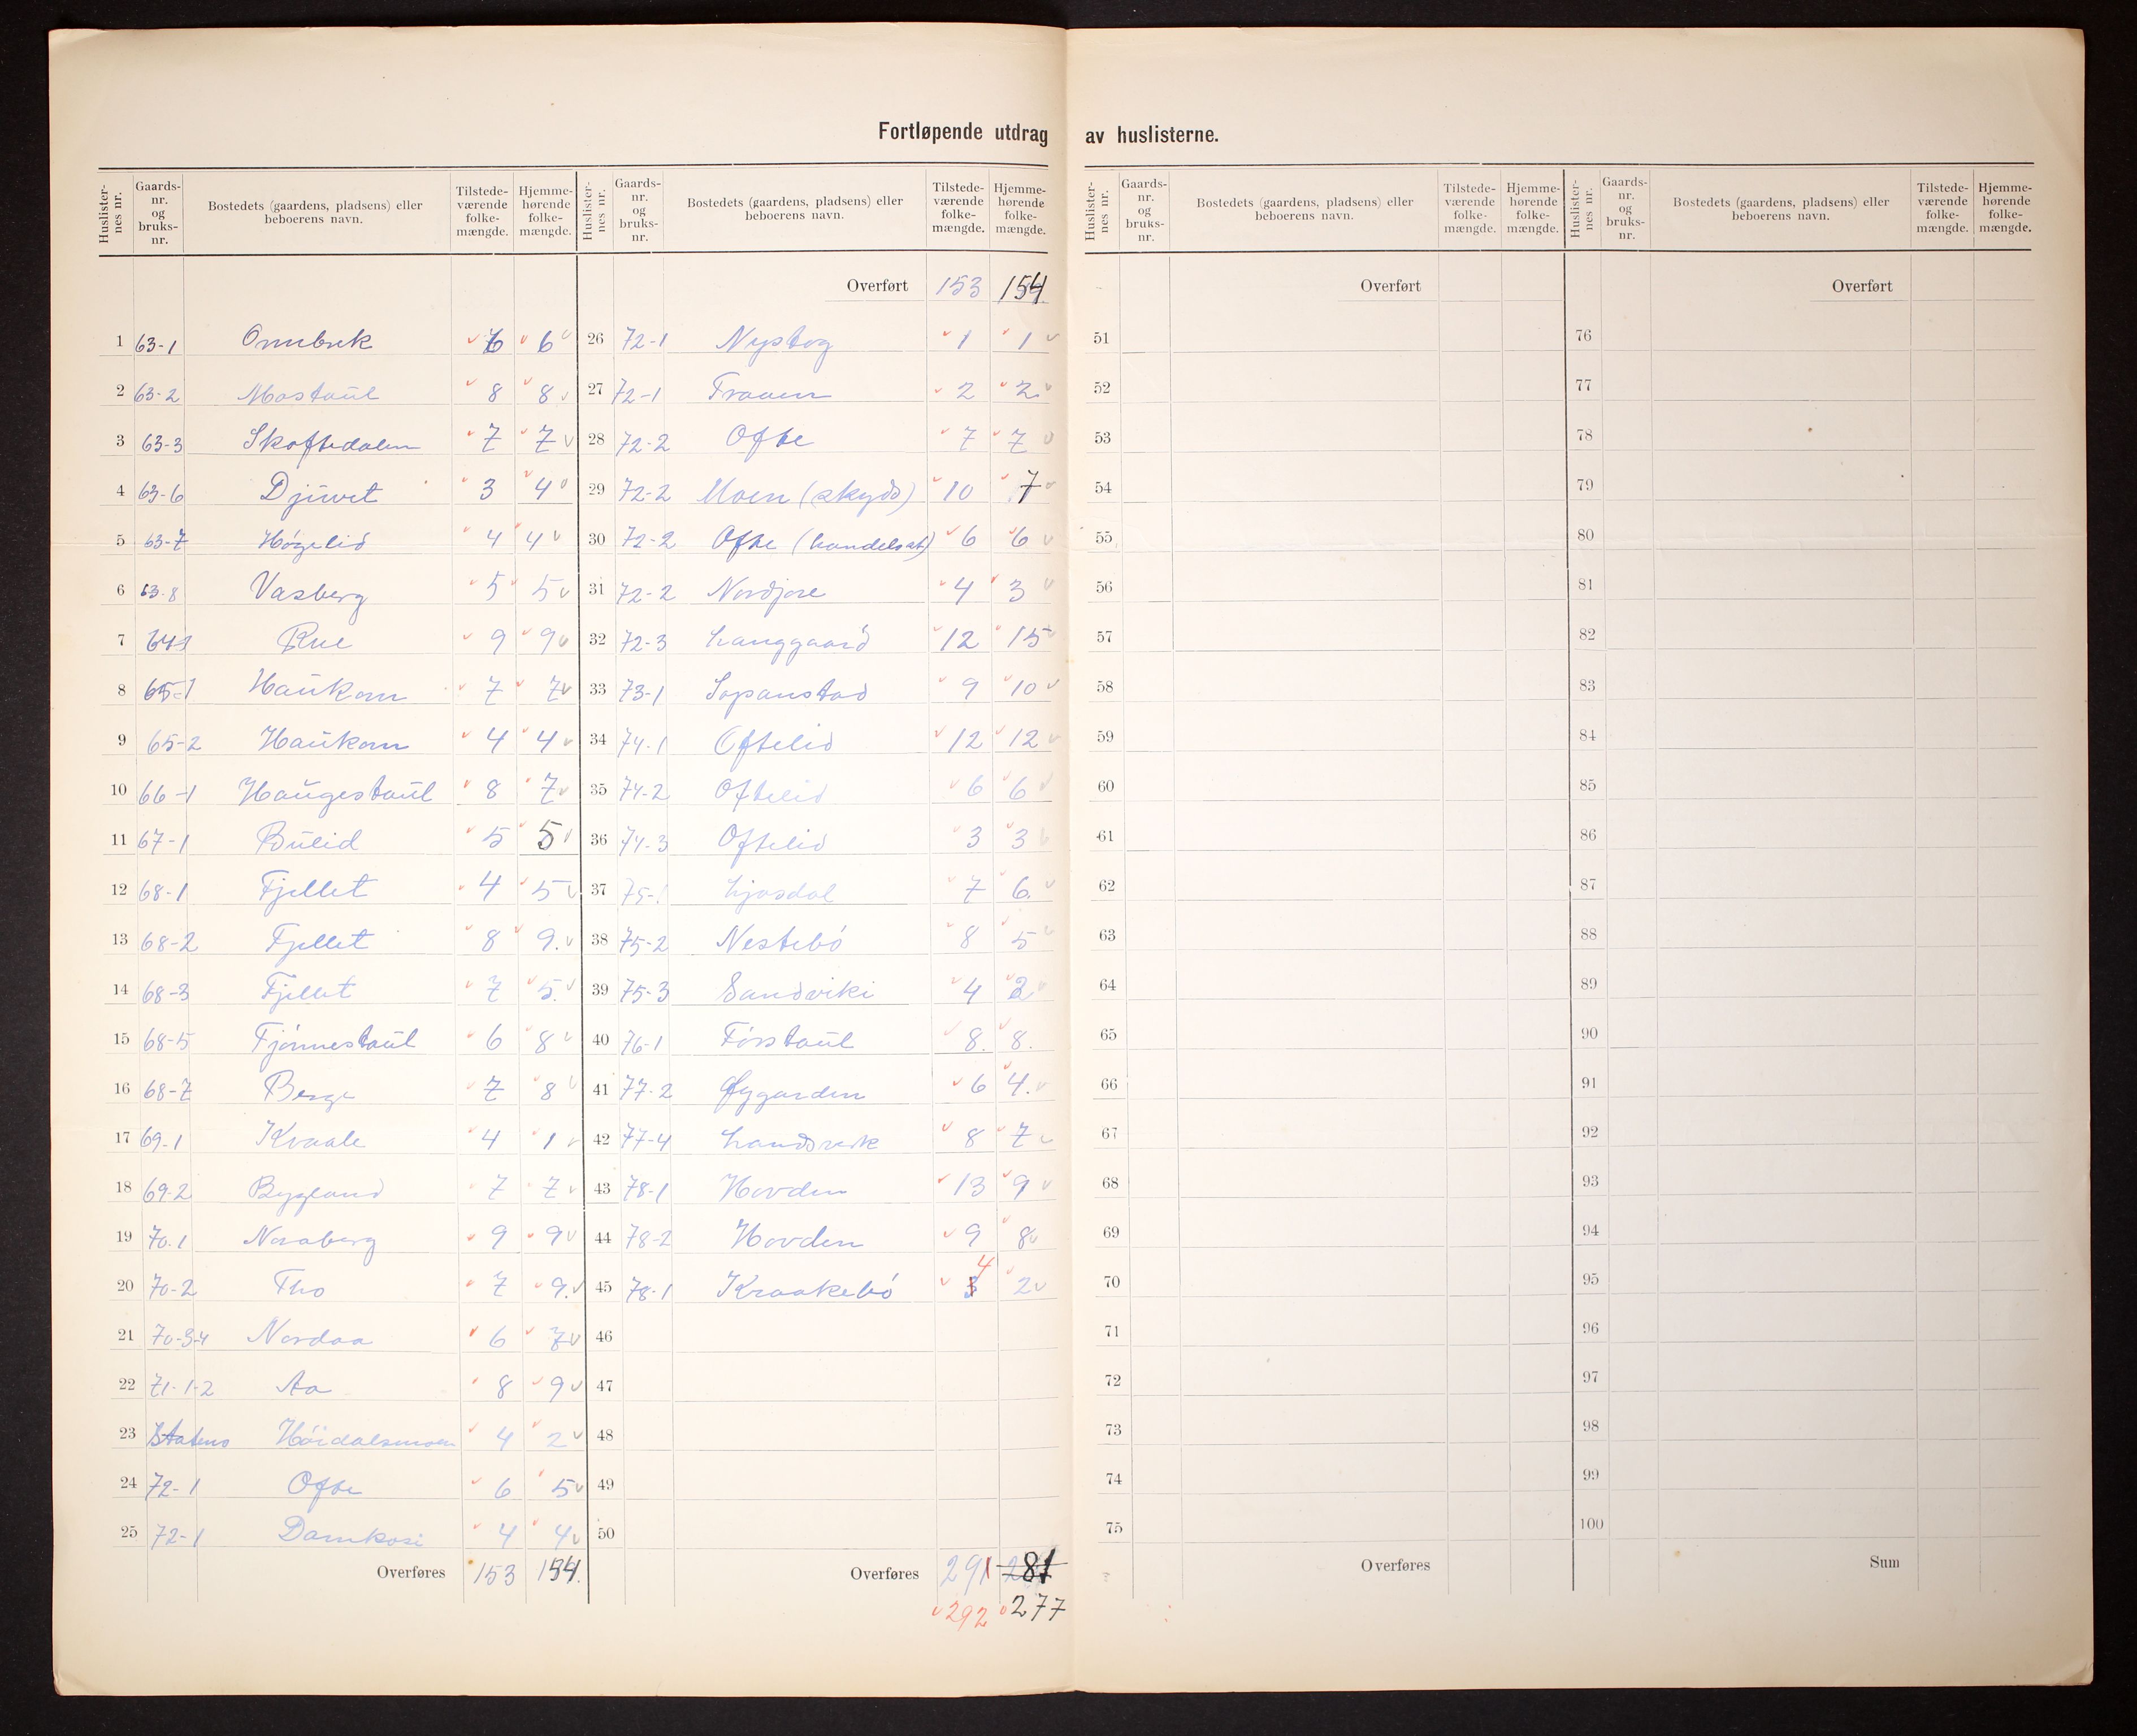 Fortløpende utdrag av huslisterne.
Huslister-nes nr. | Gaards-nr. og bruks-nr. | Bostedets (gaardens, pladsens) eller beboerens navn. | Tilstede-værende folke-mængde. | Hjemme-hørende folke-mængde.
1 63-1 Ommbrek 6 6
2 63-2 Mostaul 8 8
3 63-3 Skoftedalen 7 7
4 63-6 Djuvet 3 4
5 63-7 Høgelid 4 4
6 63-8 Vasberg 5 5
7 64-1 Rue 9 9
8 65-1 Haukom 7 7
9 65-2 Haukom 4 4
10 66-1 Haugestaul 8 7
11 67-1 Bulid 5 5
12 68-1 Fjellet 4 5
13 68-2 Fjellet 8 9.
14 68-3 Fjellet 7 5.
15 68-5 Fjønnestaul 6 8
16 68-7 Berge 7 8
17 69-1 Kvaale 4 1
18 69-2 Bygland 7 7
19 70-1 Noraberg 9 9
20 70-2 Tho 7 9.
21 70-3-4 Nordaa 6 7
22 71-1-2 Aa 8 9
23 Statens Høidalsmoen 4 2
24 72-1 Ofte 6 5
25 72-1 Damkosi 4 4
Overføres 153 154.
Huslister-nes nr. | Gaards-nr. og bruks-nr. | Bostedets (gaardens, pladsens) eller beboerens navn. | Tilstede-værende folke-mængde. | Hjemme-hørende folke-mængde.
Overført 153 154.
26 72-1 Nystog 1 1
27 72-1 Traaen 2 2
28 72-2 Ofte 7 7
29 72-2 Moen (skyds) 10 7
30 72-2 Ofte (handelsst) 6 6
31 72-2 Nordjore 4 3
32 72-3 Langgaard 12 15
33 73-1 Sopanstad 9 10
34 74-1 Oftelid 12 12
35 74-2 Oftelid 6 6
36 74-3 Oftelid 3 3
37 75-1 Ljosdal 7 6.
38 75-2 Nestebø 8 5
39 75-3 Sandviki 4
40 76-1 Førstaul 8. 8.
41 77-2 Øygarden 6 4.
42 77-4 Landsverk 8 7
43 78-1 Hovden 13 9
44 78-2 Hovden 9 8
45 78-1 Kraakebø 4 2
46
47
48
49
50
Overføres 291 281
292 277
Huslister-nes nr. | Gaards-nr. og bruks-nr. | Bostedets (gaardens, pladsens) eller beboerens navn. | Tilstede-værende folke-mængde. | Hjemme-hørende folke-mængde.
Overført
51
52
53
54
55
56
57
58
59
60
61
62
63
64
65
66
67
68
69
70
71
72
73
74
75
Overføres
Huslister-nes nr. | Gaards-nr. og bruks-nr. | Bostedets (gaardens, pladsens) eller beboerens navn. | Tilstede-værende folke-mængde. | Hjemme-hørende folke-mængde.
Overført
76
77
78
79
80
81
82
83
84
85
86
87
88
89
90
91
92
93
94
95
96
97
98
99
100
Sum